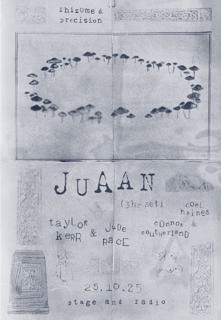 rhizome &
precision
JUAAN
(3hr set)
taylor
kerr
&
jude
pace
coel
haines
connor &
southerland
25.10.25
stage and radio